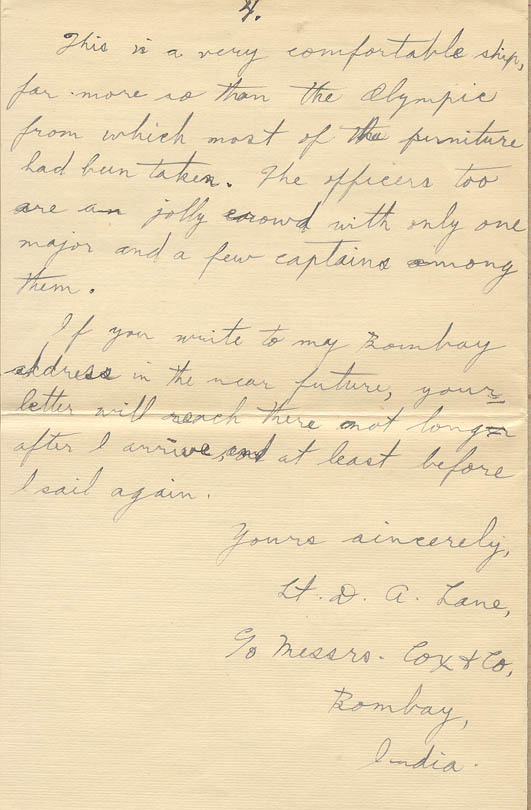 4.
This is a very comfortable ship,
far more so than the Olympic
from which most of the furniture
had been taken. The officers too
are an jolly crowd with only one
major and a few captains among
them.
If you write to my Bombay
address in the near future, your
letter will reach there not long
after I arrive, and at least before
I sail again.
Yours sincerely,
Lt. D. A. Lane,
c/o Messrs. Cox & Co,
Bombay,
India.